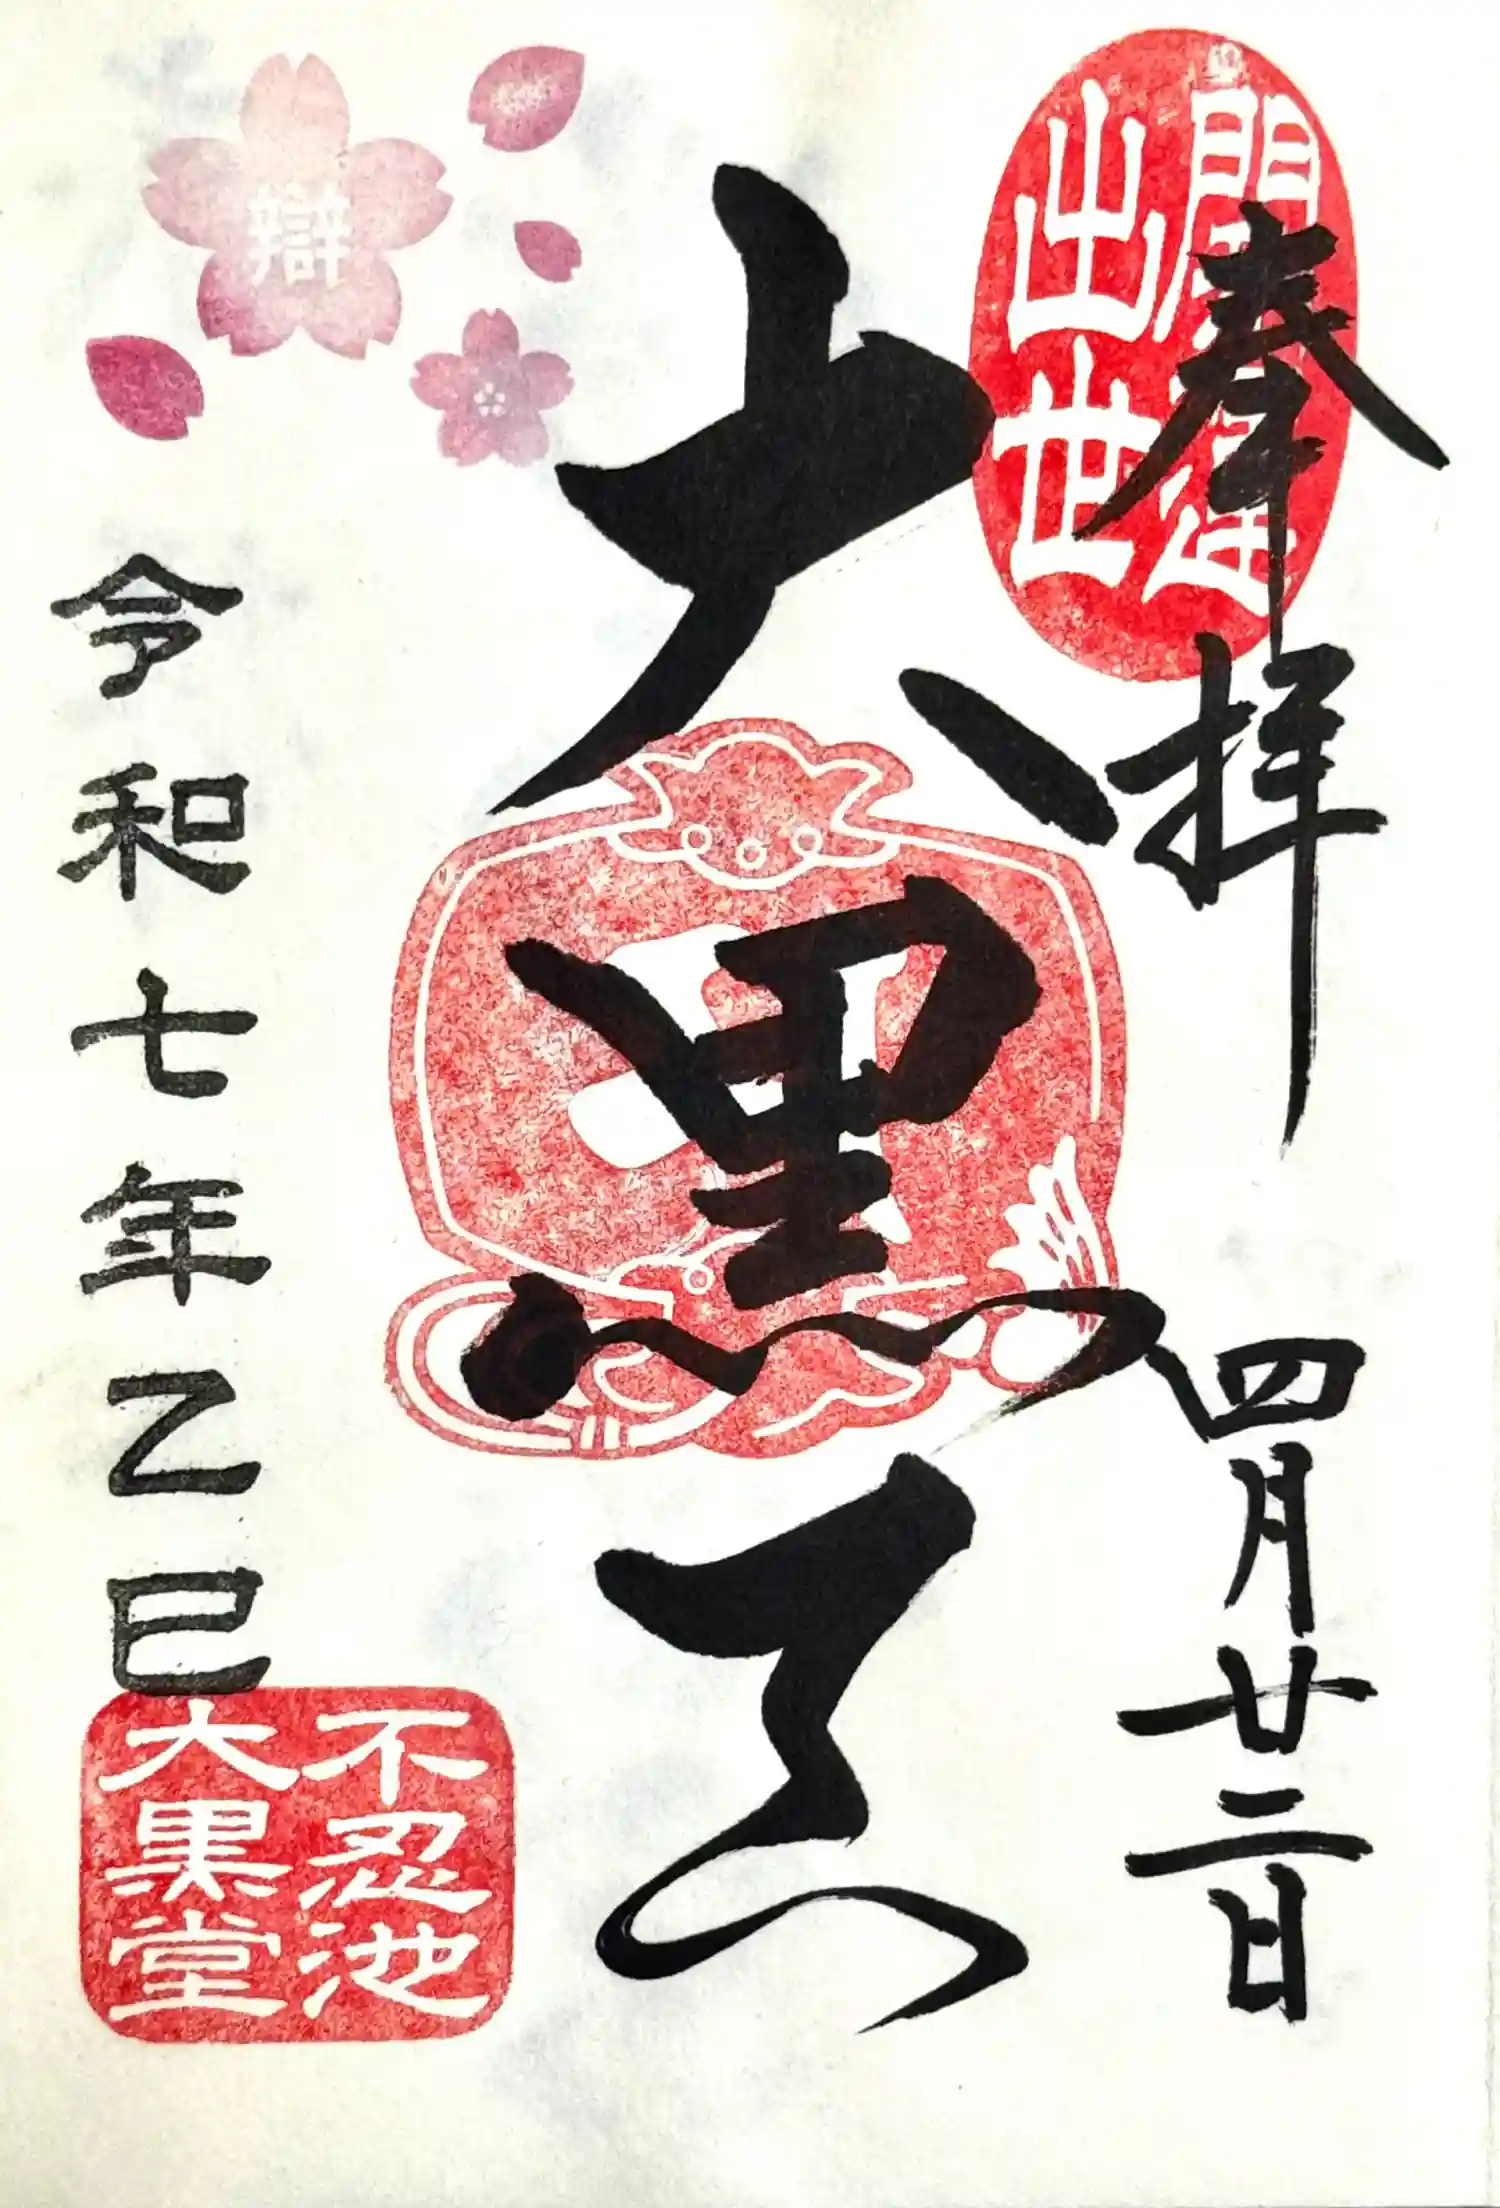 開運
出世
奉拝
四月廿二日
大黒天
辯
令和七年乙巳
不忍池
大黒堂